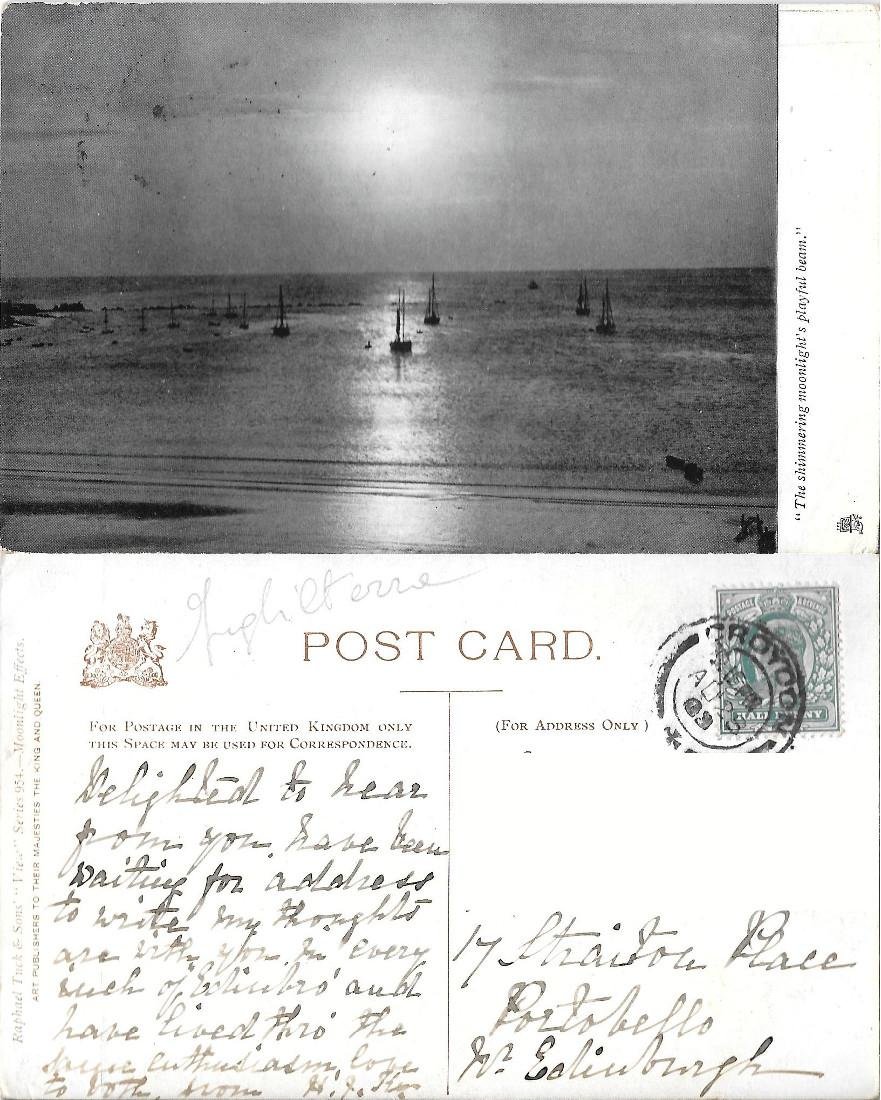 "The shimmering moonlight's playful beam."
Inghilterra
POST CARD.
FOR POSTAGE IN THE UNITED KINGDOM ONLY
THIS SPACE MAY BE USED FOR CORRESPONDENCE.
(FOR ADDRESS ONLY)
POSTAGE REVENUE
HALFPENNY
CROYDON
Raphael Tuck & Sons' "View" Series 954.—Moonlight Effects.
ART PUBLISHERS TO THEIR MAJESTIES THE KING AND QUEEN.
Delighted to hear
from you, have been
waiting for address
to write my thoughts
are with you in every
inch of Edinbro' and
have lived thro' the
same enthusiasm, love
to both, from H. J.
17 Straiton Place
Portobello
Nr. Edinburgh